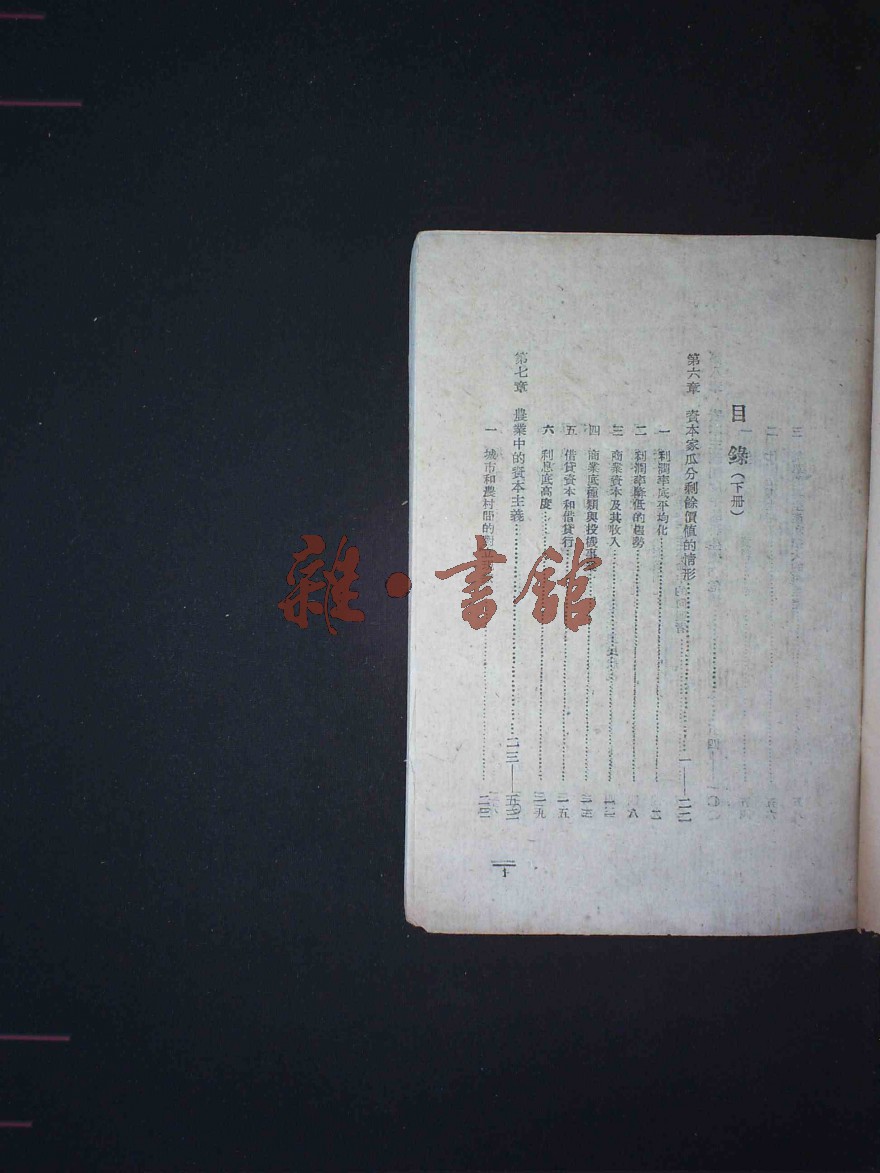 目錄(下册)
第六章 資本家瓜分剩餘價値的情形……一——二二
一 利潤率底平均化……二
二 利潤率降低的趨勢……八
三 商業資本及其收入
四 商業底種類與投機事
五 借貸資本和借貸行……一五
六 利息底高度……一九
第七章 農業中的資本主義……二三——
一 城市和農村間的對
1
雜·書館